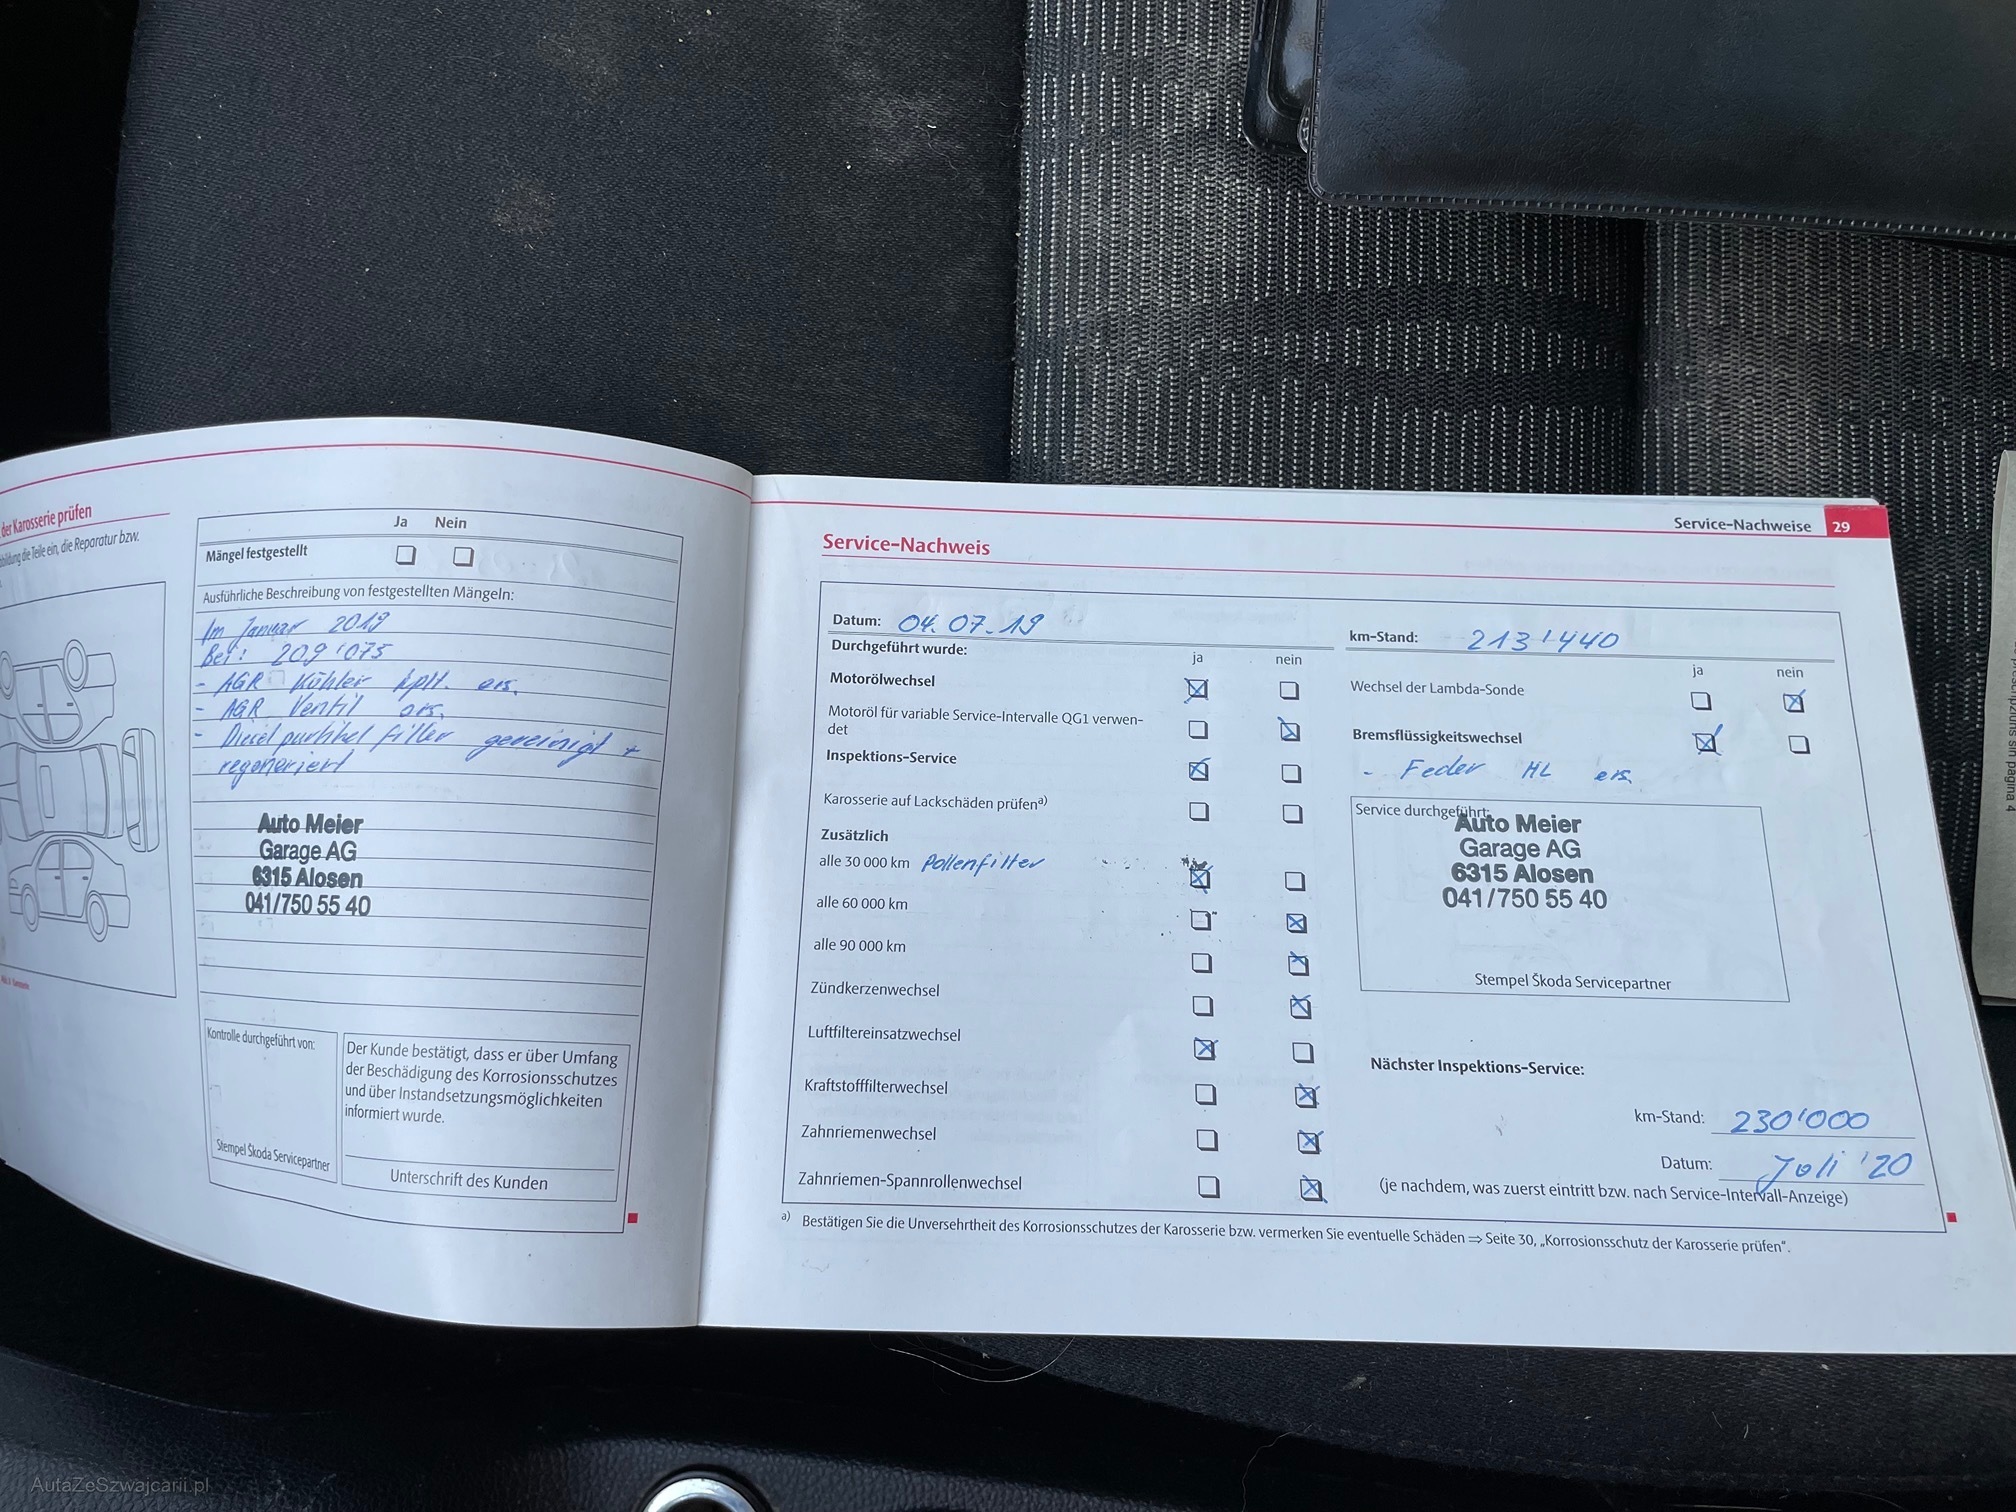 der Karosserie prüfen
bbildung die Teile ein, die Reparatur bzw.
Ja Nein
Mängel festgestellt
Ausführliche Beschreibung von festgestellten Mängeln:
Im Januar 2019
Bei: 209'075
- AGR Kühler kplt. ers.
- AGR Ventil ers.
- Dieselpartikelfilter gereinigt +
regeneriert
Auto Meier
Garage AG
6315 Alosen
041/750 55 40
Kontrolle durchgeführt von:
Stempel Škoda Servicepartner
Der Kunde bestätigt, dass er über Umfang
der Beschädigung des Korrosionsschutzes
und über Instandsetzungsmöglichkeiten
informiert wurde.
Unterschrift des Kunden
Service-Nachweise 29
Service-Nachweis
Datum: 04.07.19
Durchgeführt wurde:
ja nein
Motorölwechsel
Motoröl für variable Service-Intervalle QG1 verwen-
det
Inspektions-Service
Karosserie auf Lackschäden prüfen a)
Zusätzlich
alle 30 000 km Pollenfilter
alle 60 000 km
alle 90 000 km
Zündkerzenwechsel
Luftfiltereinsatzwechsel
Kraftstofffilterwechsel
Zahnriemenwechsel
Zahnriemen-Spannrollenwechsel
km-Stand: 213'440
ja nein
Wechsel der Lambda-Sonde
Bremsflüssigkeitswechsel
- Feder HL ers.
Service durchgeführt:
Auto Meier
Garage AG
6315 Alosen
041/750 55 40
Stempel Škoda Servicepartner
Nächster Inspektions-Service:
km-Stand: 230'000
Datum: Juli '20
(je nachdem, was zuerst eintritt bzw. nach Service-Intervall-Anzeige)
a) Bestätigen Sie die Unversehrtheit des Korrosionsschutzes der Karosserie bzw. vermerken Sie eventuelle Schäden ⇒ Seite 30, „Korrosionsschutz der Karosserie prüfen“.
AutaZeSzwajcarii.pl